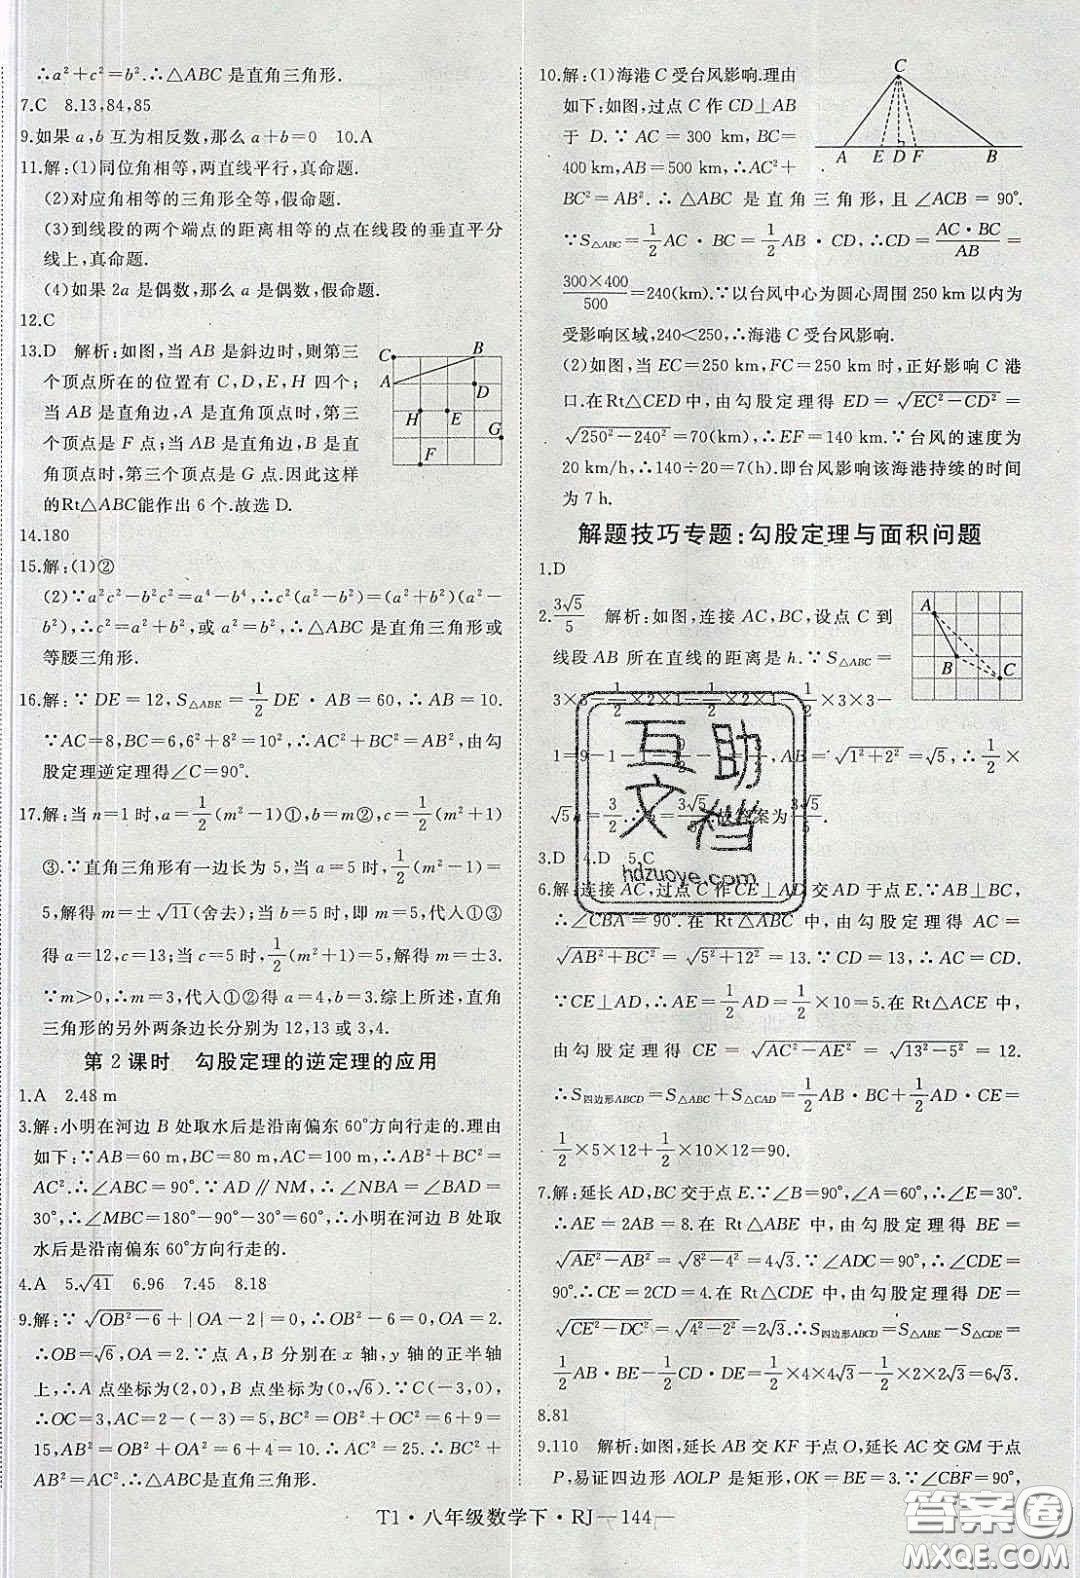 ∴a²+c²=b².∴△ABC 是直角三角形.
7.C 8.13,84,85
9.如果 a,b 互为相反数,那么 a+b=0 10.A
11.解:(1)同位角相等,两直线平行,真命题.
(2)对应角相等的三角形全等,假命题.
(3)到线段的两个端点的距离相等的点在线段的垂直平分
线上,真命题.
(4)如果 2a 是偶数,那么 a 是偶数,假命题.
12.C
13.D 解析:如图,当 AB 是斜边时,则第三
个顶点所在的位置有 C,D,E,H 四个;
当 AB 是直角边,A 是直角顶点时,第三
个顶点是 F 点;当 AB 是直角边,B 是直
角顶点时,第三个顶点是 G 点.因此这样
的Rt△ABC能作出 6 个.故选 D.
C B
A D
H E G
F
14.180
15.解:(1)②
(2)∵a²c²-b²c²=a⁴-b⁴,∴c²(a²-b²)=(a²+b²)(a²-
b²),∴c²=a²+b²,或 a²-b²=0,∴△ABC 是直角三角形或
等腰三角形.
16.解:∵DE=12,S△ABE=1/2 DE·AB=60,∴AB=10.
∵AC=8,BC=6,6²+8²=10²,∴AC²+BC²=AB²,由勾
股定理逆定理得∠C=90°.
17.解:当 n=1 时,a=1/2(m²-1)①,b=m②,c=1/2(m²+1)
③.∵直角三角形有一边长为 5,当 a=5 时,1/2(m²-1)=
5,解得 m=±√11(舍去).当 b=5 时,m=5,代入①③
得 a=12,c=13;当 c=5 时,1/2(m²+1)=5,解得 m=±3.
∵m>0,∴m=3,代入①②得 a=4,b=3.综上所述,直角
三角形的另外两条边长分别为 12,13 或 3,4.
第 2 课时 勾股定理的逆定理的应用
1.A 2.48 m
3.解:小明在河边 B 处取水后是沿南偏东 60°方向行走的.理由
如下:∵AB=60 m,BC=80 m,AC=100 m,∴AB²+BC²=
AC².∴∠ABC=90°.∵AD∥NM,∴∠NBA=∠BAD=
30°,∴∠MBC=180°-90°-30°=60°,∴小明在河边 B 处取
水后是沿南偏东 60°方向行走的.
4.A 5.√41 6.96 7.45 8.18
9.解:∵√(OB²-6)+|OA-2|=0,∴OB²-6=0,OA=2.
∴OB=√6,OA=2.∵点 A,B 分别在 x 轴,y 轴的正半轴
上,∴A 点坐标为(2,0),B 点坐标为(0,√6).∵C(-3,0),
∴OC=3,AC=2-(-3)=5,∴BC²=OB²+OC²=6+9=
15,AB²=OB²+OA²=6+4=10.∵AC²=25.∴BC²+
AB²=AC².∴△ABC是直角三角形.
10.解:(1)海港 C 受台风影响.理由
如下:如图,过点 C 作 CD⊥AB
于 D.∵AC=300 km,BC=
400 km,AB=500 km,∴AC²+
BC²=AB².∴△ABC 是直角三角形,且∠ACB=90°.
C
A E D F B
∵S△ABC=1/2 AC·BC=1/2 AB·CD,∴CD=AC·BC/AB=
300×400/500=240(km).∵以台风中心为圆心周围 250 km以内为
受影响区域,240<250,∴海港 C 受台风影响.
(2)如图,当 EC=250 km,FC=250 km时,正好影响 C 港
口.在Rt△CED中,由勾股定理得 ED=√(EC²-CD²)=
√(250²-240²)=70(km).∴EF=140 km.∵台风的速度为
20 km/h,∴140÷20=7(h).即台风影响该海港持续的时间
为 7 h.
解题技巧专题:勾股定理与面积问题
1.D
2.3√5/5 解析:如图,连接 AC,BC,设点 C 到
线段 AB 所在直线的距离是 h.∵S△ABC=
A
B C
3×3-1/2×2×1-1/2×2×1-1/2×3×3-
1=9-1-1- =3/2,AB=√(1²+2²)=√5,∴1/2×
√5 =3/2.∴ =3√5/5. 案为3√5/5.
3.D 4.D 5.C
6.解:连接 AC,过点 C 作CE⊥AD 交AD 于点E.∵AB⊥BC,
∴∠CBA=90°.在 Rt△ABC 中,由勾股定理得 AC=
√(AB²+BC²)=√(5²+12²)=13.∵CD=13,∴AC=CD.
∵CE⊥AD,∴AE=1/2AD=1/2×10=5.在 Rt△ACE 中,
由勾股定理得 CE=√(AC²-AE²)=√(13²-5²)=12.
∴S四边形ABCD=S△ABC+S△CAD=1/2AB·BC+1/2AD·CE=
1/2×5×12+1/2×10×12=90.
7.解:延长 AD,BC 交于点 E.∵∠B=90°,∠A=60°,∴∠E=30°.
∴AE=2AB=8.在 Rt△ABE 中,由勾股定理得 BE=
√(AE²-AB²)=√(8²-4²)=4√3.∵∠ADC=90°,∴∠CDE=
90°.∴CE=2CD=4.在 Rt△CDE 中,由勾股定理得 DE=
√(CE²-DC²)=√(4²-2²)=2√3.∴S四边形ABCD=S△ABE-S△CDE=
1/2AB·BE-1/2CD·DE=1/2×4×4√3-1/2×2×2√3=6√3.
8.81
9.110 解析:如图,延长 AB 交 KF 于点 O,延长 AC 交 GM 于点
P,易证四边形 AOLP 是矩形,OK=BE=3.∵∠CBF=90°,
T1·八年级数学下·RJ—144—
互助文档
hdzuoye.com
答案圈
MXQE.COM